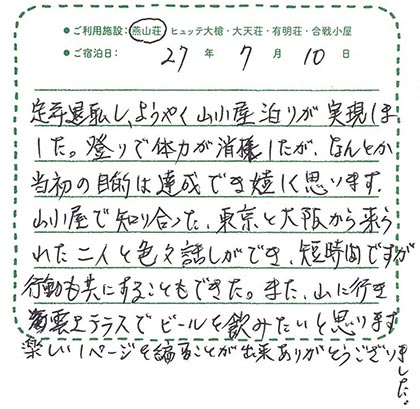 ●ご利用施設:燕山荘 ヒュッテ大槍・大天荘・有明荘・合戦小屋
●ご宿泊日: 27年 7月 10日
定年退職し、ようやく山小屋泊りが実現しま
した。登りで体力が消耗したが、なんとか
当初の目的は達成でき嬉しく思います。
山小屋で知り合った、東京と大阪から来ら
れた二人と色々話しができ、短時間ですが
行動も共にすることもできた。また、山に行き
雲上テラスでビールを飲みたいと思います
楽しい1ページを綴ることが出来ありがとうございました。